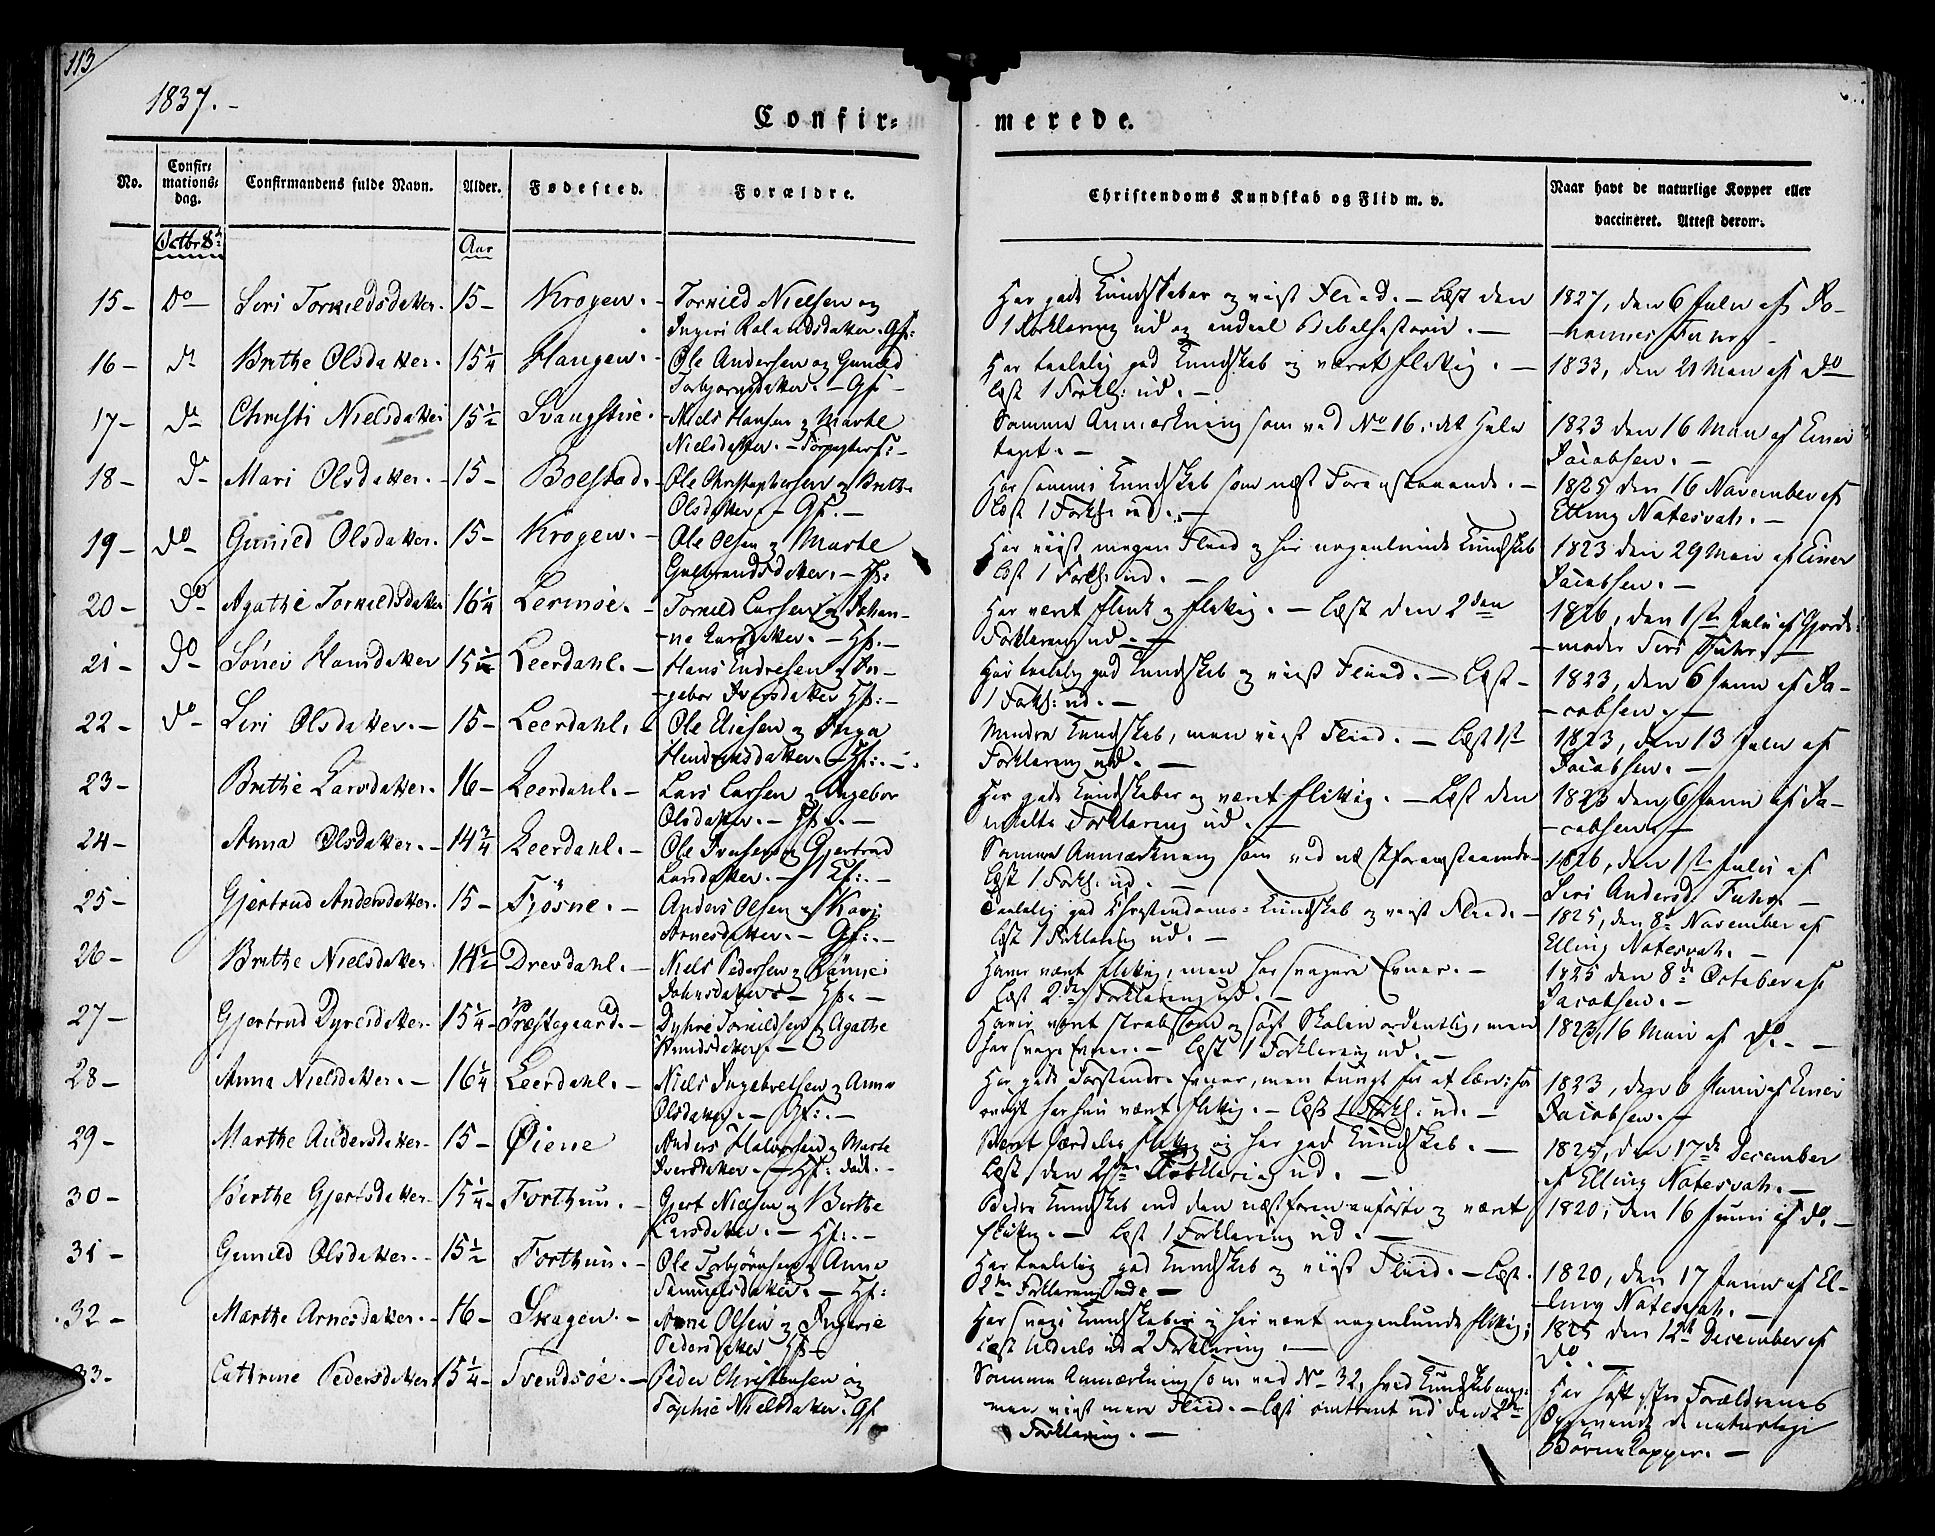 113
1837.-
Confir=
merede.
No.
Confir=
mations=
dag.
Confirmandens fulde Navn.
Alder.
Fødested.
Forældre.
Christendoms Kundskab og Flid m. v.
Naar havt de naturlige Kopper eller
vaccineret. Attest derom.
Octbr 8de
Aar
15- Do Siri Tornildsdatter. 15- Krogen.- Tornild Nielsen og
Ingeri Rolandsdatter. Gf:
Har gode Kundskaber og viist Fliid.- Læst den
1 Forklaring ud og endeel Bibelhistorie.-
1827, den 6 Julii af Jo-
hannes Fuhr.-
16- Do Brithe Olsdatter. 15¼ Haugen.- Ole Andersen og Gunild
Torbjørnsdatter.- Gf.-
Har taalelig god Kundskab og været flittig.-
Læst 1 Forkl: ud.-
1833, den 21 Maii af Do-
17- Do Christi Nielsdatter 15½ Svangstue.- Niels Hansen og Marthe
Nielsdatter.-
Samme Anmærkning som ved No 16, i det Hele
taget.-
1823 den 16 Maii af Einer
Jacobsen.-
18- Do Mari Olsdatter.- 15- Boestad.- Ole Christophersen og Brithe
Olsdatter.- Gf.-
Har samme Kundskab som næst Foranstaaende.-
Læst 1 Forkl: ud.-
1825 den 16 November af
Elling Natesvah.-
19- Do Gunild Olsdatter. 15- Krogen.- Ole Olsen og Marthe
Gulbrandsdatter.- Hf:
Har viist megen Fliid og har nogenlunde Kundskab
Læst 1 Forkl: ud.-
1823 den 29 Maii af Einer
Jacobsen.-
20- Do Agathe Tornildsdatter 16¼ Lermøe.- Tornild Larsen og Johan-
-ne Larsdatter.- Hf.-
Har været flink og flittig.- Læst den 2den
Forklaring ud.-
1826, den 1ste Julii af Gjorde-
-moder Siri Fuhr.-
21- Do Sønei Hansdatter 15½ Leerdahl.- Hans Endresen og In-
-gebor Iversdatter Hf:-
Har taalelig god Kundskab og viist Fliid.- Læst-
1 Forkl: ud.-
1823, den 6 Junii af Ja-
-cobsen.-
22- Do Siri Olsdatter.- 15- Leerdahl.- Ole Eliesen og Inga
Hendrichsdatter.- Hf:.-
Mindre Kundskab, men viist Fliid.- Læst 1ste
Forklaring ud.-
1823, den 13 Julii af
Jacobsen.-
23- Brithe Larsdatter. 16- Leerdahl.- Lars Larsen og Ingebor
Olsdatter.- Hf.-
Har gode Kundskaber og været flittig.- Læst den
anden Forklaring ud.-
1823 den 6 Junii af Ja-
-cobsen.-
24- Anna Olsdatter.- 14¾ Leerdahl.- Ole Iversen og Gjertrud
Larsdatter.- Hf:.-
Samme Anmærkning som ved næstforanstaaende-
Læst 1 Forkl: ud.-
1826, den 1ste Julii af
Siri Andersd. Fuhr.-
25- Gjertrud Andersdatter. 15- Tjøsne.- Anders Olsen og Kari
Arnesdatter.- Gf:.-
Taalelig god Christendoms-Kundskab og viist Fliid.-
Læst 1 Forklaring ud.-
1825, den 8de November af
Elling Natesvah.-
26- Brithe Nielsdatter 14½ Drevdahl.- Niels Pedersen og Rønnei
Johnsdatter.- Hf.-
Haver været flittig, men har svagere Evner.-
Læst 2den Forklaring ud.-
1825 den 8de October af
Jacobsen.-
27- Gjertrud Dyresdatter. 15¼- Præstegaard.- Dyhre Tornildsen og Agathe
Haver været strabsom og søgt Skolen ordentlig, men
har svage Evner.- Læst 1 Forklaring ud.-
1823, 16 Maii af Do.-
28- Anna Nielsdatter.- 16¼ Leerdahl.- Niels Ingebretsen og Anna
Olsdatter.- Gf:.-
Har gode Forstands Evner, men tungt for at lære; for
øvrigt har hun været flittig.- Læst 1 Forkl: ud.-
1823, den 6 Junii af Einer
Jacobsen.-
29- Marthe Andersdatter- 15- Øiene Anders Halvorsen og Marte
Iversdatter.- Hf: død.-
Været særdeles flittig og har god Kundskab.-
Læst den 2den Forklaring ud.-
1825, den 17de December
af Elling Natesvah.-
30- Berthe Gjertsdatter- 15¼- Forthun.- Gjert Nielsen og Berthe
Larsdatter.- Hf:.-
Bedre Kundskab end den næstforan anførte og været
flittig.- Læst 1 Forklaring ud.-
1820, den 16 Junii af Do.-
31- Gunild Olsdatter.- 15½ Forthun.- Ole Torbjørnsen og Anna
Samuelsdatter.- Hf:
Har taalelig god Kundskab og viist Fliid.- Læst.
2den Forklaring ud.-
1820, den 17 Junii af El-
-ling Natesvah.-
32- Marthe Arnesdatter.- 16- Skagen.- Arne Olsen og Ingerie
Pedersdatter Hf-
Har svage Kundskaber og har været nogenlunde flittig;
Læst ud 2 Forklaring.-
1825 den 12te December af
Do.-
33- Cathrine Pedersdatter 15¼- Svendsøe.- Peder Christensen og
Sophie Nielsdatter. Gf
Samme Anmærkning som ved No 32, hvad Kundskab ang:
men viist mere Fliid.- Læst omtrent ud den 2den
Forklaring.-
Har havt efter Forældrenes
Opgivende de naturlige
Børnekopper.-